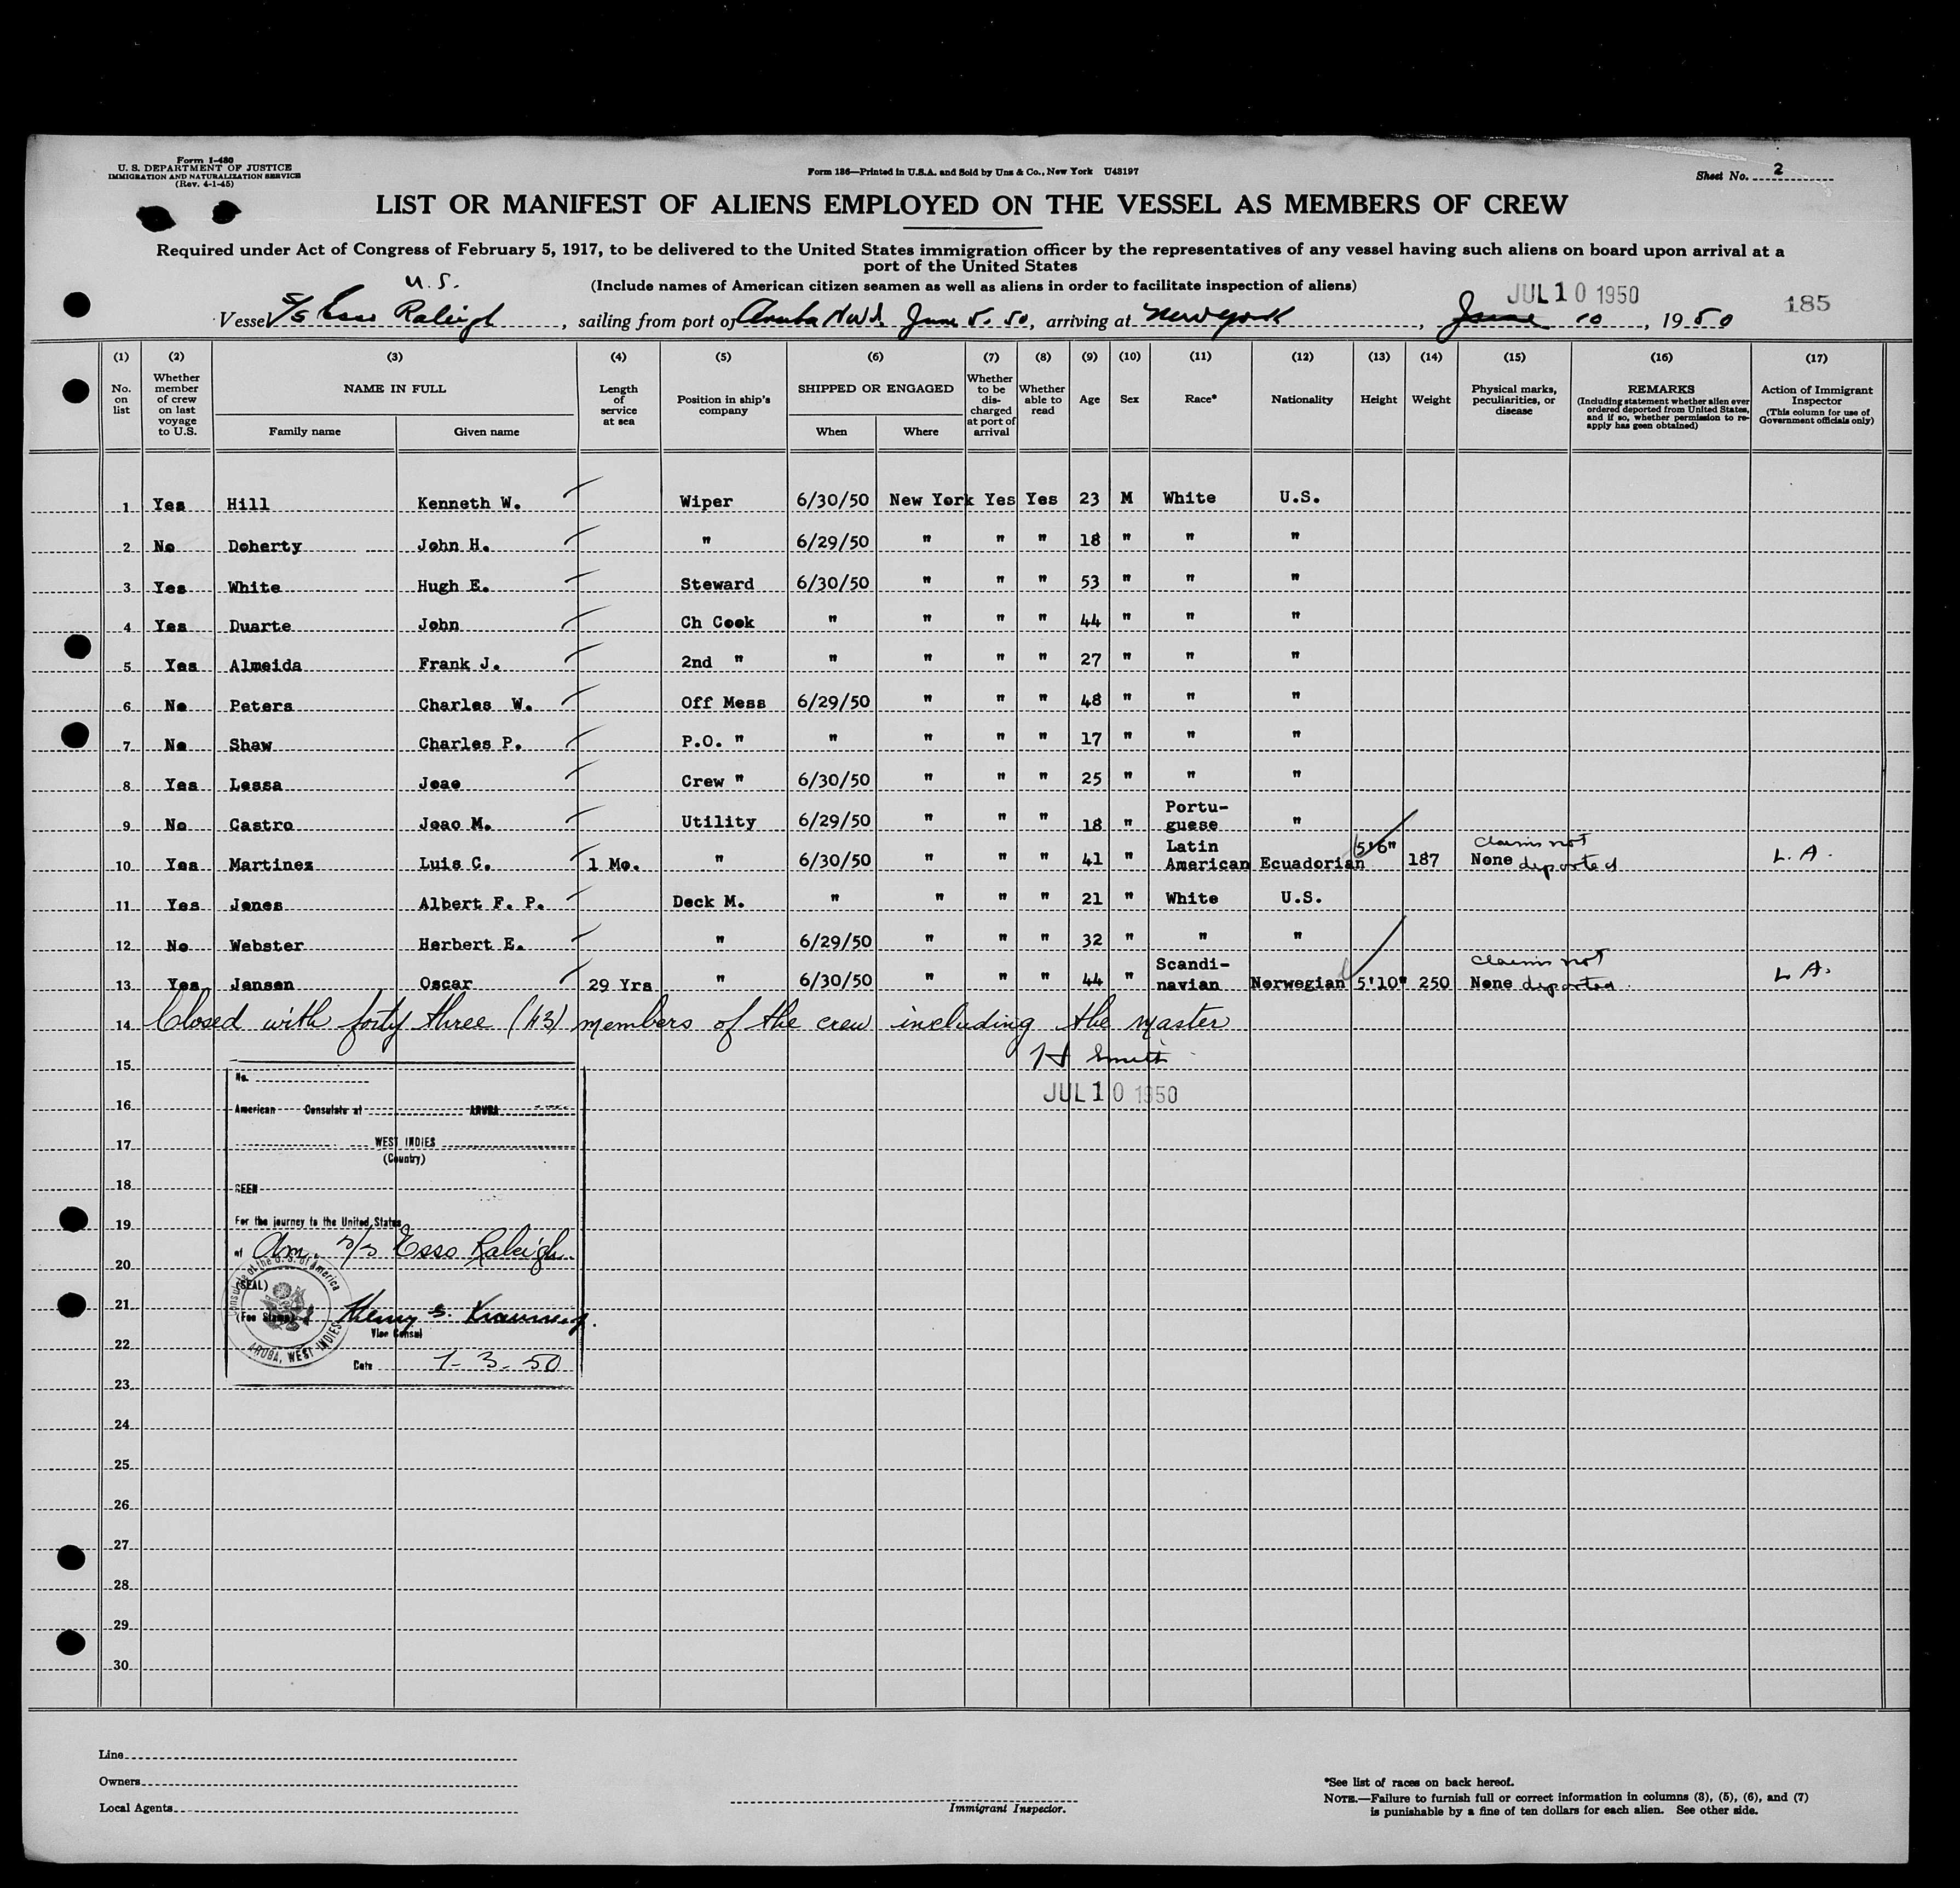 Form I-480
U. S. DEPARTMENT OF JUSTICE
IMMIGRATION AND NATURALIZATION SERVICE
(Rev. 4-1-45)
Form 136—Printed in U.S.A. and Sold by Uns & Co., New York U43197
Sheet No. 2
LIST OR MANIFEST OF ALIENS EMPLOYED ON THE VESSEL AS MEMBERS OF CREW
Required under Act of Congress of February 5, 1917, to be delivered to the United States immigration officer by the representatives of any vessel having such aliens on board upon arrival at a
port of the United States
(Include names of American citizen seamen as well as aliens in order to facilitate inspection of aliens)
U.S.
JUL 10 1950
185
Vessel S/S Esso Raleigh, sailing from port of Aruba N.W.I. June 5. 50, arriving at New York, June 10, 1950
(1) (2) (3) (4) (5) (6) (7) (8) (9) (10) (11) (12) (13) (14) (15) (16) (17)
No. on list
Whether member of crew on last voyage to U.S.
NAME IN FULL
Family name
Given name
Length of service at sea
Position in ship's company
SHIPPED OR ENGAGED
When
Where
Whether to be discharged at port of arrival
Whether able to read
Age
Sex
Race*
Nationality
Height
Weight
Physical marks, peculiarities, or disease
REMARKS
(Including statement whether alien ever ordered deported from United States, and if so, whether permission to reapply has geen obtained)
Action of Immigrant Inspector
(This column for use of Government officials only)
1 Yes Hill Kenneth W. Wiper 6/30/50 New York Yes Yes 23 M White U.S.
2 No Doherty John H. " 6/29/50 " " " 18 " " "
3 Yes White Hugh E. Steward 6/30/50 " " " 53 " " "
4 Yes Duarte John Ch Cook " " " " 44 " " "
5 Yes Almeida Frank J. 2nd " " " " " 27 " " "
6 No Peters Charles W. Off Mess 6/29/50 " " " 48 " " "
7 No Shaw Charles P. P.O. " " " " " 17 " " "
8 Yes Lessa Joao Crew " 6/30/50 " " " 25 " " "
9 No Castro Joao M. Utility 6/29/50 " " " 18 " Portu-guese "
10 Yes Martinez Luis C. 1 Mo. " 6/30/50 " " " 41 " Latin American Ecuadorian 5'6" 187 None claims not deported L. A.
11 Yes Jones Albert F. P. Deck M. " " " " 21 " White U.S.
12 No Webster Herbert E. " 6/29/50 " " " 32 " " "
13 Yes Jensen Oscar 29 Yrs " 6/30/50 " " " 44 " Scandi-navian Norwegian 5'10" 250 None claims not deported L. A.
14 Closed with forty three (43) members of the crew including the master
H Smith
15
JUL 10 1950
No.
16
American Consulate at ARUBA
17
WEST INDIES
(Country)
18
SEEN
19
For the journey to the United States
of Am. S/S Esso Raleigh
20
(SEAL)
Consulate of the U. S. of America
ARUBA, WEST INDIES
21
(Fee Stamp)
Henry S.
Vice Consul
22
Date 7-3-50
23
24
25
26
27
28
29
30
Line
Owners
Local Agents
Immigrant Inspector.
*See list of races on back hereof.
NOTE.—Failure to furnish full or correct information in columns (3), (5), (6), and (7)
is punishable by a fine of ten dollars for each alien. See other side.